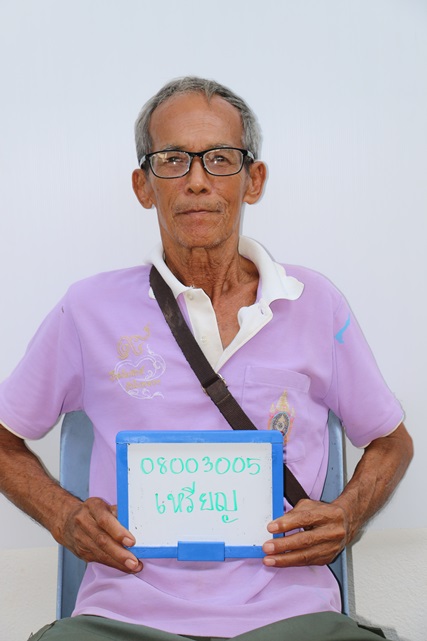 08003005
เหรียญ